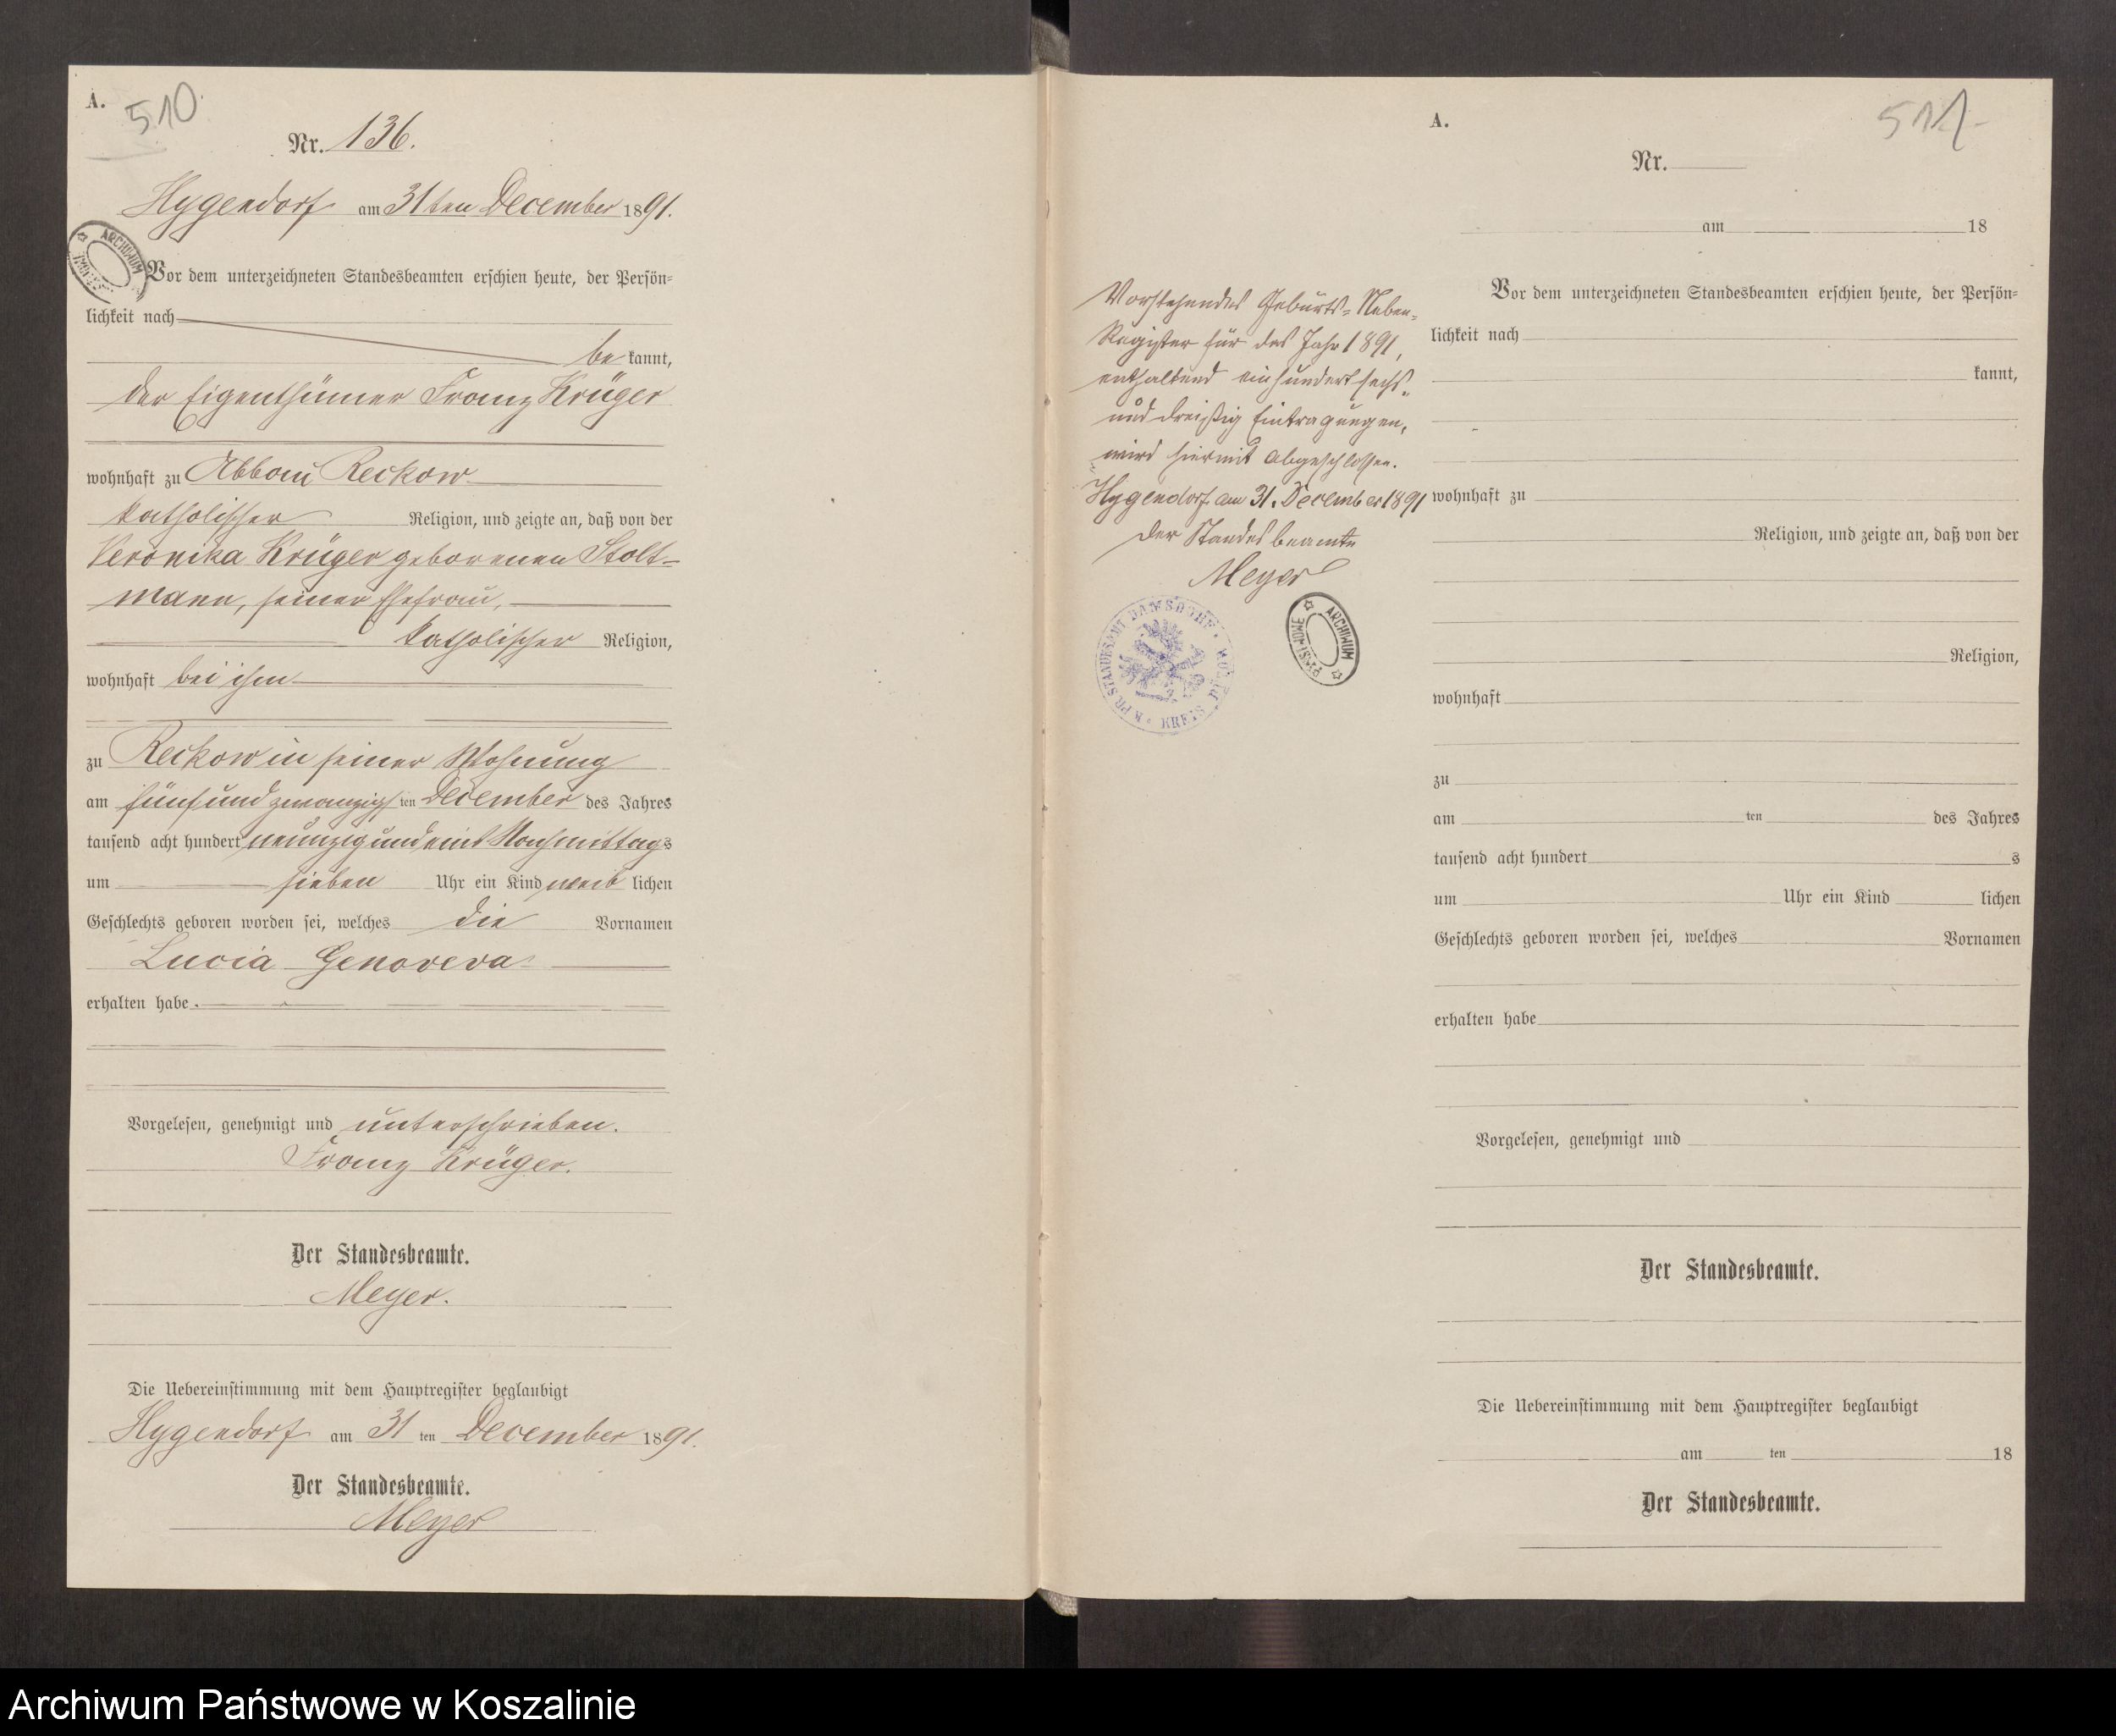 A.
510.
Nr. 136.
Hygendorf am 31ten December 1891.
ARCHIWUM
Vor dem unterzeichneten Standesbeamten erschien heute, der Persön-
lichkeit nach
be kannt,
der Eigenthümer Franz Krüger
wohnhaft zu Abbau Reckow
katholischer Religion, und zeigte an, daß von der
Veronika Krüger geborenen Stolt-
mann, seiner Ehefrau,
katholischer Religion,
wohnhaft bei ihm
zu Reckow in seiner Wohnung
am fünf und zwanzigs ten December des Jahres
tausend acht hundert neunzig und eins Nachmittags
um sieben Uhr ein Kind weib lichen
Geschlechts geboren worden sei, welches die Vornamen
Lucia Genoveva
erhalten habe.
Vorgelesen, genehmigt und unterschrieben.
Franz Krüger.
Der Standesbeamte.
Meyer.
Die Uebereinstimmung mit dem Hauptregister beglaubigt
Hygendorf am 31 ten December 1891.
Der Standesbeamte.
Meyer
Vorstehendes Geburts-Neben-
Register für das Jahr 1891,
enthaltend einhundert sechs-
und dreißig Eintragungen,
wird hiermit abgeschlossen.
Hygendorf am 31. December 1891
Der Standesbeamte
Meyer
K. PR. STANDESAMT DAMSDORF
KREIS
ARCHIWUM
A.
511
Nr.
am 18
Vor dem unterzeichneten Standesbeamten erschien heute, der Persön-
lichkeit nach
kannt,
wohnhaft zu
Religion, und zeigte an, daß von der
Religion,
wohnhaft
zu
am ten des Jahres
tausend acht hundert s
um Uhr ein Kind lichen
Geschlechts geboren worden sei, welches Vornamen
erhalten habe
Vorgelesen, genehmigt und
Der Standesbeamte.
Die Uebereinstimmung mit dem Hauptregister beglaubigt
am ten 18
Der Standesbeamte.
Archiwum Państwowe w Koszalinie